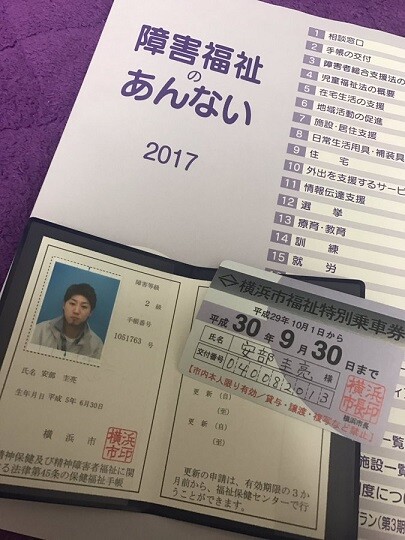 障害福祉
の
あんない
2017
1 相談窓口
2 手帳の交付
3 障害者総合支援法の
4 児童福祉法の概要
5 在宅生活の支援
6 地域活動の促進
7 施設・居住支援
8 日常生活用具・補装具
9 住宅
10 外出を支援するサービ
11 情報伝達支援
12 選挙
13 療育・教育
14 訓練
15 就労
障害等級
2 級
手帳番号
1051763 号
氏名 安部 圭亮
生年月日 平成 5年 6月30日
横浜市
横浜市印
精神保健及び精神障害者福祉に関
する法律第45条の保健福祉手帳
更新 (自)
(至)
更新 (自)
(至)
更新の申請は、有効期限の3か
月前から、福祉保健センターで行
うことができます。
横浜市福祉特別乗車券
平成29年10月1日から
平成30年9月30日まで
氏名 安部圭亮 様
交付番号 040082013
横浜市長
【市内本人限り有効/貸与・譲渡・複写など禁止】
一覧
施設一覧
制度につい
ラン(第3期